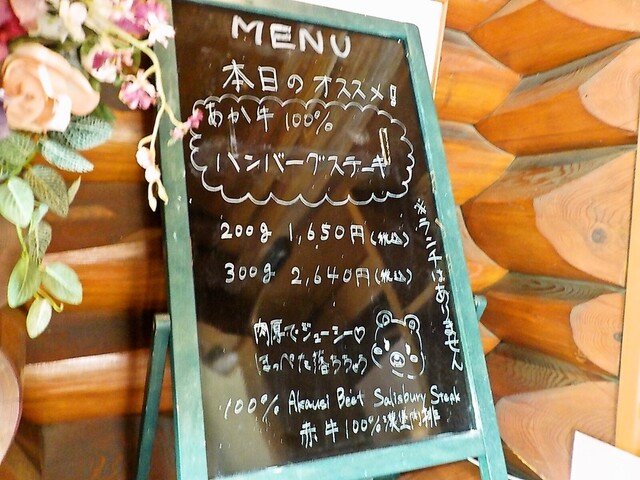 MENU
本日のオススメ!
あか牛100%
ハンバーグステーキ
200g 1,650円(税込)
300g 2,640円(税込)
※ランチはありません
肉厚でジューシー♡
ほっぺた落ちちゃう
100% Akausi Beet Salisbury Steak
赤牛100%漢堡肉排